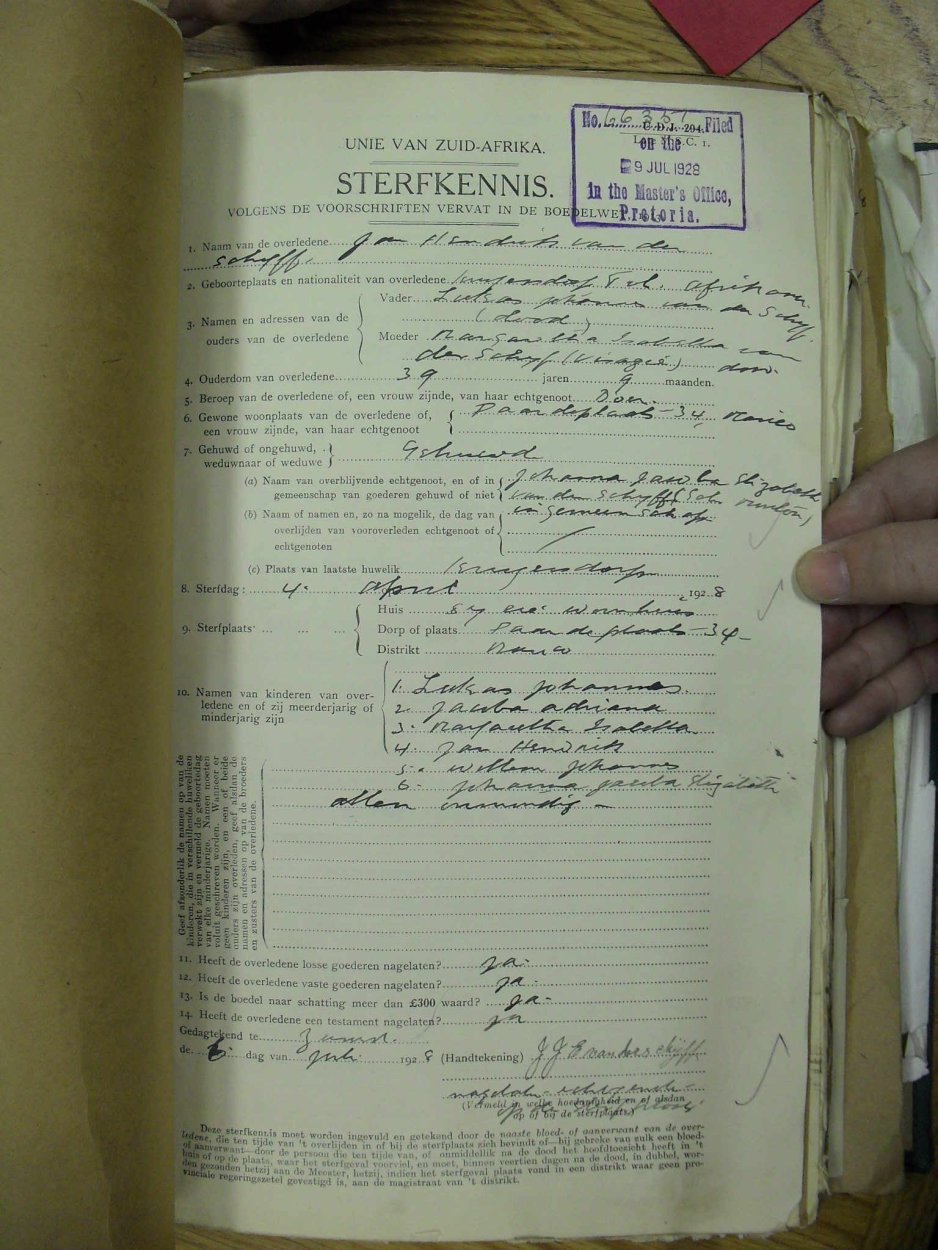 No. 66357 U.D.J. 294. Filed
on the
9 JUL 1928
in the Master's Office,
Pretoria.
UNIE VAN ZUID-AFRIKA.
STERFKENNIS.
VOLGENS DE VOORSCHRIFTEN VERVAT IN DE BOEDELWET
1. Naam van de overledene Jan Hendrik van der
Schyff.
2. Geboorteplaats en nationaliteit van overledene Krugersdorp Afrikaner
3. Namen en adressen van de ouders van de overledene
Vader Lukas Johannes van der Schyff
(dood)
Moeder Margaretha Isabella van
der Schyf (Visagie) dood
4. Ouderdom van overledene 39 jaren 9 maanden.
5. Beroep van de overledene of, een vrouw zijnde, van haar echtgenoot Boer.
6. Gewone woonplaats van de overledene of, Paardeplaats 34, Marico
een vrouw zijnde, van haar echtgenoot
7. Gehuwd of ongehuwd, Gehuwd
weduwnaar of weduwe
(a) Naam van overblijvende echtgenoot, en of in Johanna Jacoba Elizabeth
gemeenschap van goederen gehuwd of niet van der Schyff
(b) Naam of namen en, zo na mogelik, de dag van in gemeenschap
overlijden van vooroverleden echtgenoot of
echtgenoten
(c) Plaats van laatste huwelik Krugersdorp
8. Sterfdag: 4. April 1928
9. Sterfplaats
Huis sy eie woonhuis
Dorp of plaats Paardeplaats 34
Distrikt Marico
10. Namen van kinderen van over-
ledene en of zij meerderjarig of
minderjarig zijn
1. Lukas Johannes
2. Jacoba Adriana
3. Margaretha Isabella
4. Jan Hendrik
5. Willem Johannes
6. Johanna Jacoba Elizabeth
allen onmundig
Geef afzonderlik de namen op van de
kinderen, die in verschillende huweliken
verwekt zijn en vermeld de geboortedag
van elke minderjarige. Namen moeten
voluit geschreven worden. Wanneer er
geen kinderen zijn, en een of beide
ouders zijn overleden, geef alsdan de
namen en adressen op van de broeders
en zusters van de overledene.
11. Heeft de overledene losse goederen nagelaten? ja.
12. Heeft de overledene vaste goederen nagelaten? ja.
13. Is de boedel naar schatting meer dan £300 waard? ja.
14. Heeft de overledene een testament nagelaten? ja
Gedagtekend te Zeerust.
de 6. dag van Juli 1928 (Handtekening) J J E van der Schyff
(Vermeld in welke hoedanigheid en of alsdan
op of bij de sterfplaats)
Deze sterfkennis moet worden ingevuld en getekend door de naaste bloed- of aanverwant van de over-
ledene, die ten tijde van 't overlijden in of bij de sterfplaats zich bevindt of—bij gebreke van zulk een bloed-
of aanverwant—door de persoon die ten tijde van, of onmiddellik na de dood het hoofdtoezicht heeft in 't
huis of op de plaats, waar het sterfgeval voorviel, en moet, binnen veertien dagen na de dood, in dubbel, wor-
den gezonden hetzij aan de Meester, hetzij, indien het sterfgeval plaats vond in een distrikt waar geen pro-
vinciale regeringszetel gevestigd is, aan de magistraat van 't distrikt.